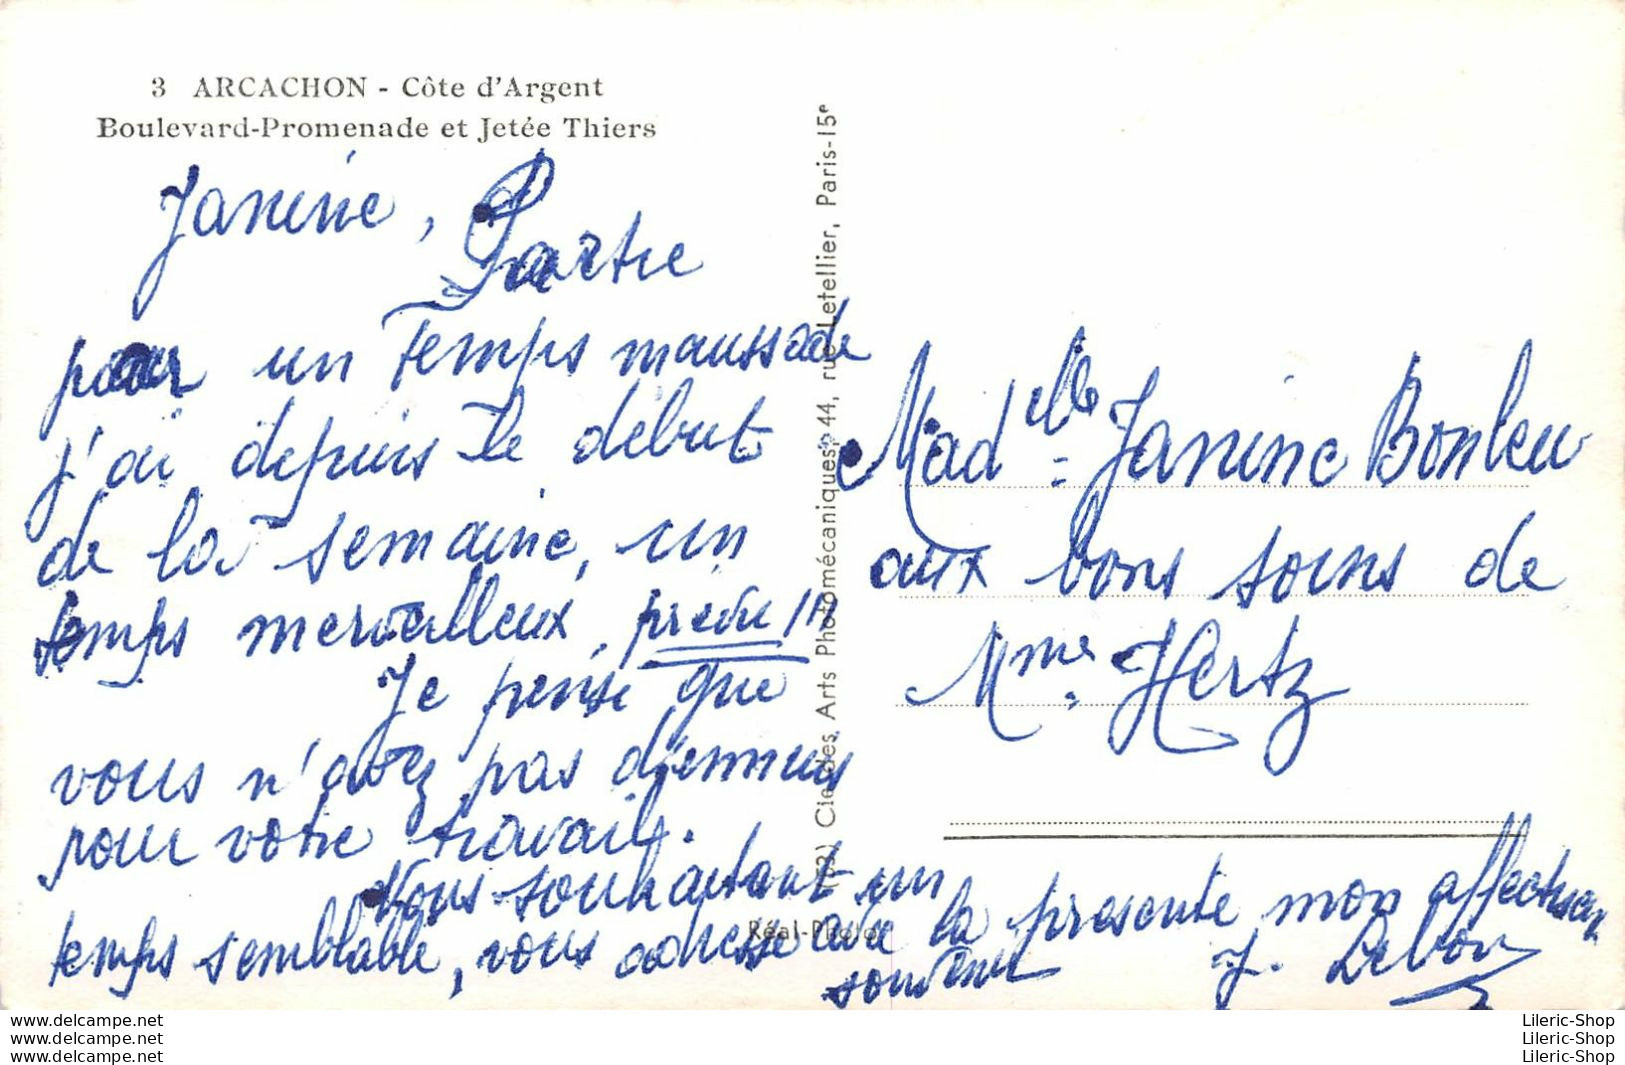 3 ARCACHON - Côte d'Argent
Boulevard-Promenade et Jetée Thiers
Janine, Partie
pour un temps maussade
j'ai depuis le début
de la semaine, un
temps merveilleux, prévu !!!
Je pense que
vous n'avez pas d'ennuis
pour votre travail.
Vous souhaitant un
temps semblable, vous adresse avec la présente mon affectueux
souvenir J. Lebon
Cie des Arts Photomécaniques, 44, rue Letellier, Paris-15e
Réal-Photo
Madelle Janine Bonleu
aux bons soins de
Mme Hertz
www.delcampe.net
www.delcampe.net
www.delcampe.net
Lileric-Shop
Lileric-Shop
Lileric-Shop